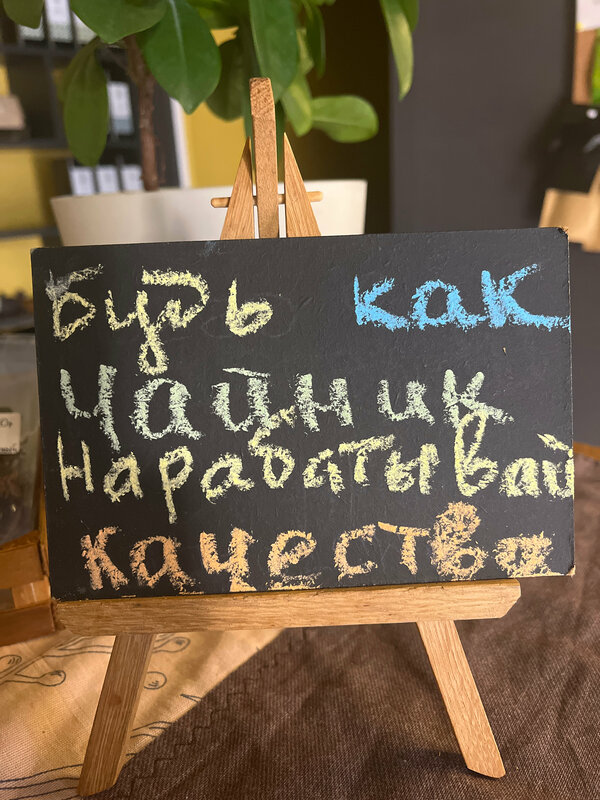 Будь как
чайник
Нарабатывай
качества